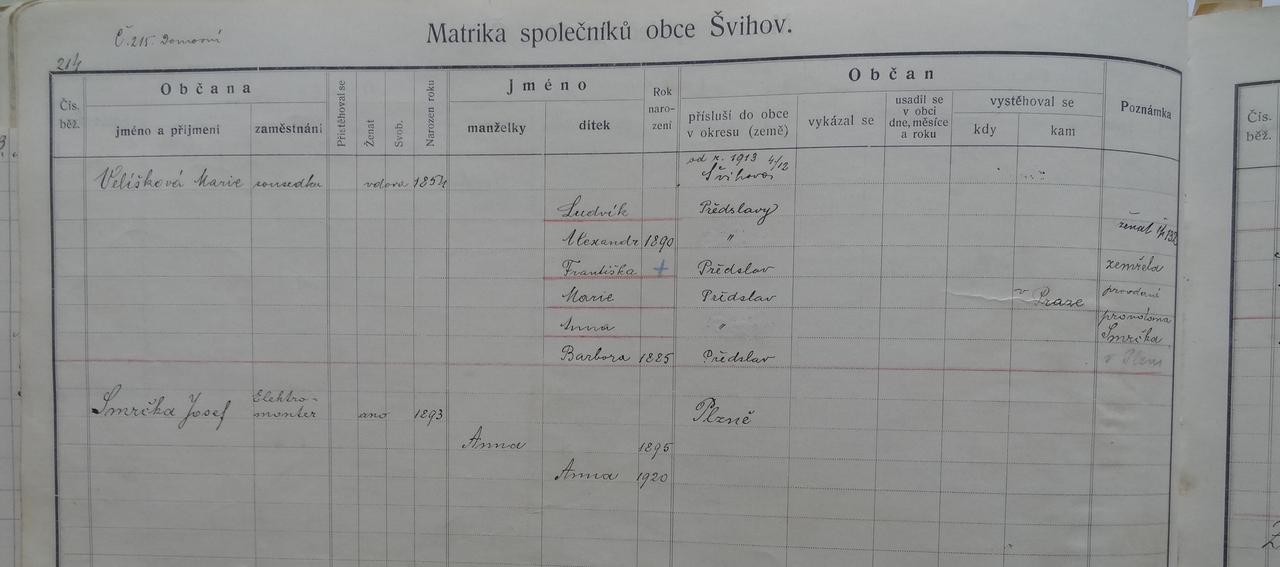 Č. 215. Domovní
Matrika společníků obce Švihov.
214
Čís. běž.
Občana
jméno a přijmení
zaměstnání
Přistěhoval se
Ženat
Svob.
Narozen roku
Jméno
manželky
dítek
Rok naro- zení
Občan
přísluší do obce v okresu (země)
vykázal se
usadil se v obci dne, měsíce a roku
vystěhoval se
kdy
kam
Poznámka
Čís. běž.
od r. 1913 4/12
Velíšková Marie sousedka vdova 1854 Švihova
Ludvík Předslavy
Alexandr 1890 " ženat
Františka + Předslav zemřela
Marie Předslav v Praze provdaná
Anna " provdaná
Smrčka
Barbora 1885 Předslav v Plzni
Smrčka Josef Elektro- monter ano 1893 Plzně
Anna 1895
Anna 1920